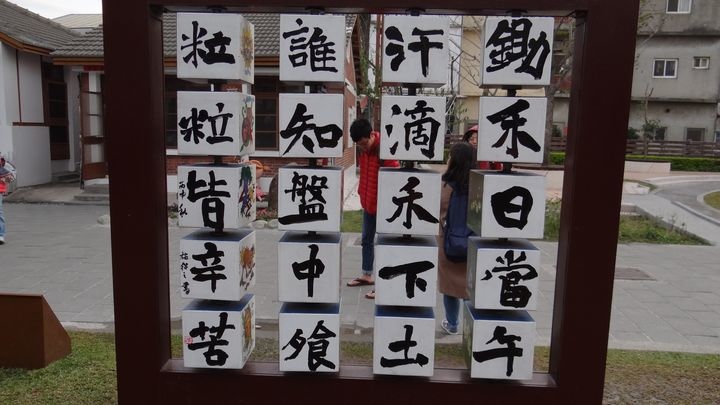 鋤禾日當午
汗滴禾下土
誰知盤中飧
粒粒皆辛苦
丙申秋